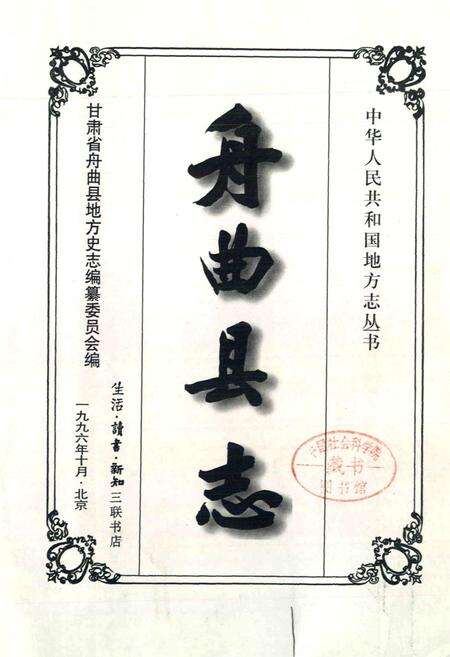 中华人民共和国地方志丛书
舟曲县志
甘肃省舟曲县地方史志编纂委员会编
生活·讀書·新知三联书店
一九九六年十月·北京
中国社会科学院
藏书
图书馆